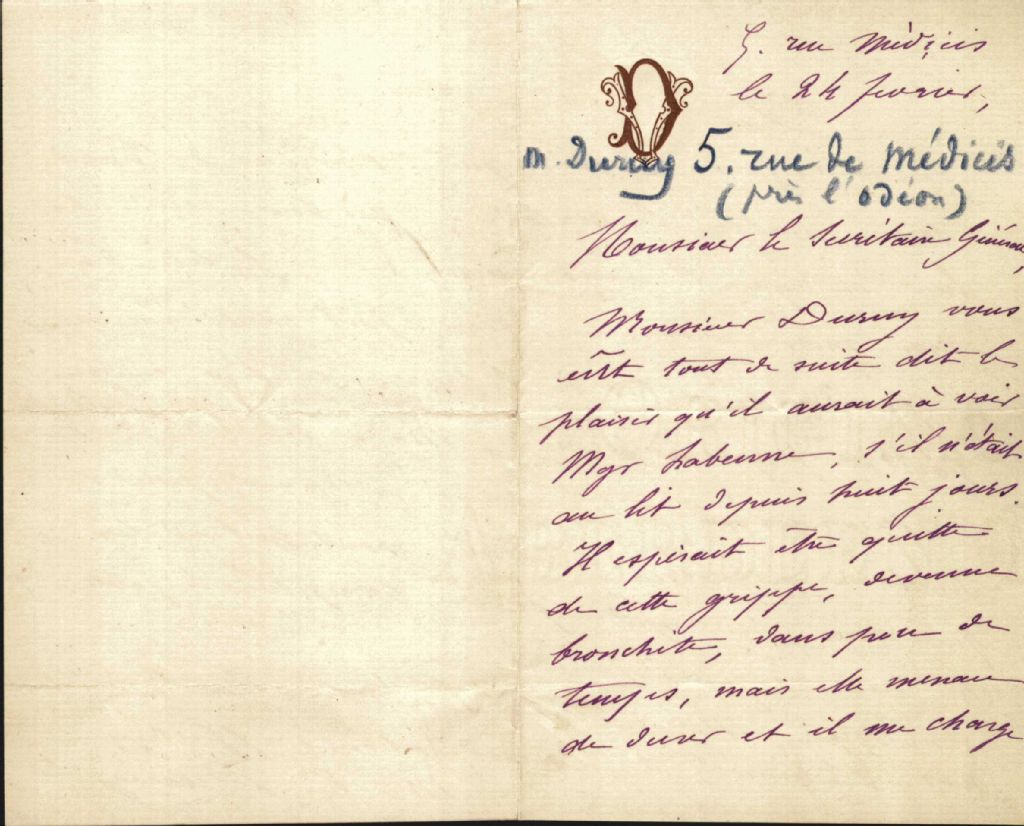 5. rue Médicis
le 24 février,
D
M. Duruy 5. rue de Médicis
(près l'Odéon)
Monsieur le Secrétaire Général,
Monsieur Duruy vous
eût tout de suite dit le
plaisir qu'il aurait à voir
Mgr, s'il n'était
au lit depuis huit jours.
Il espérait être quitte
de cette grippe, devenue
bronchite, dans peu de
temps, mais elle menace
de durer et il me charge